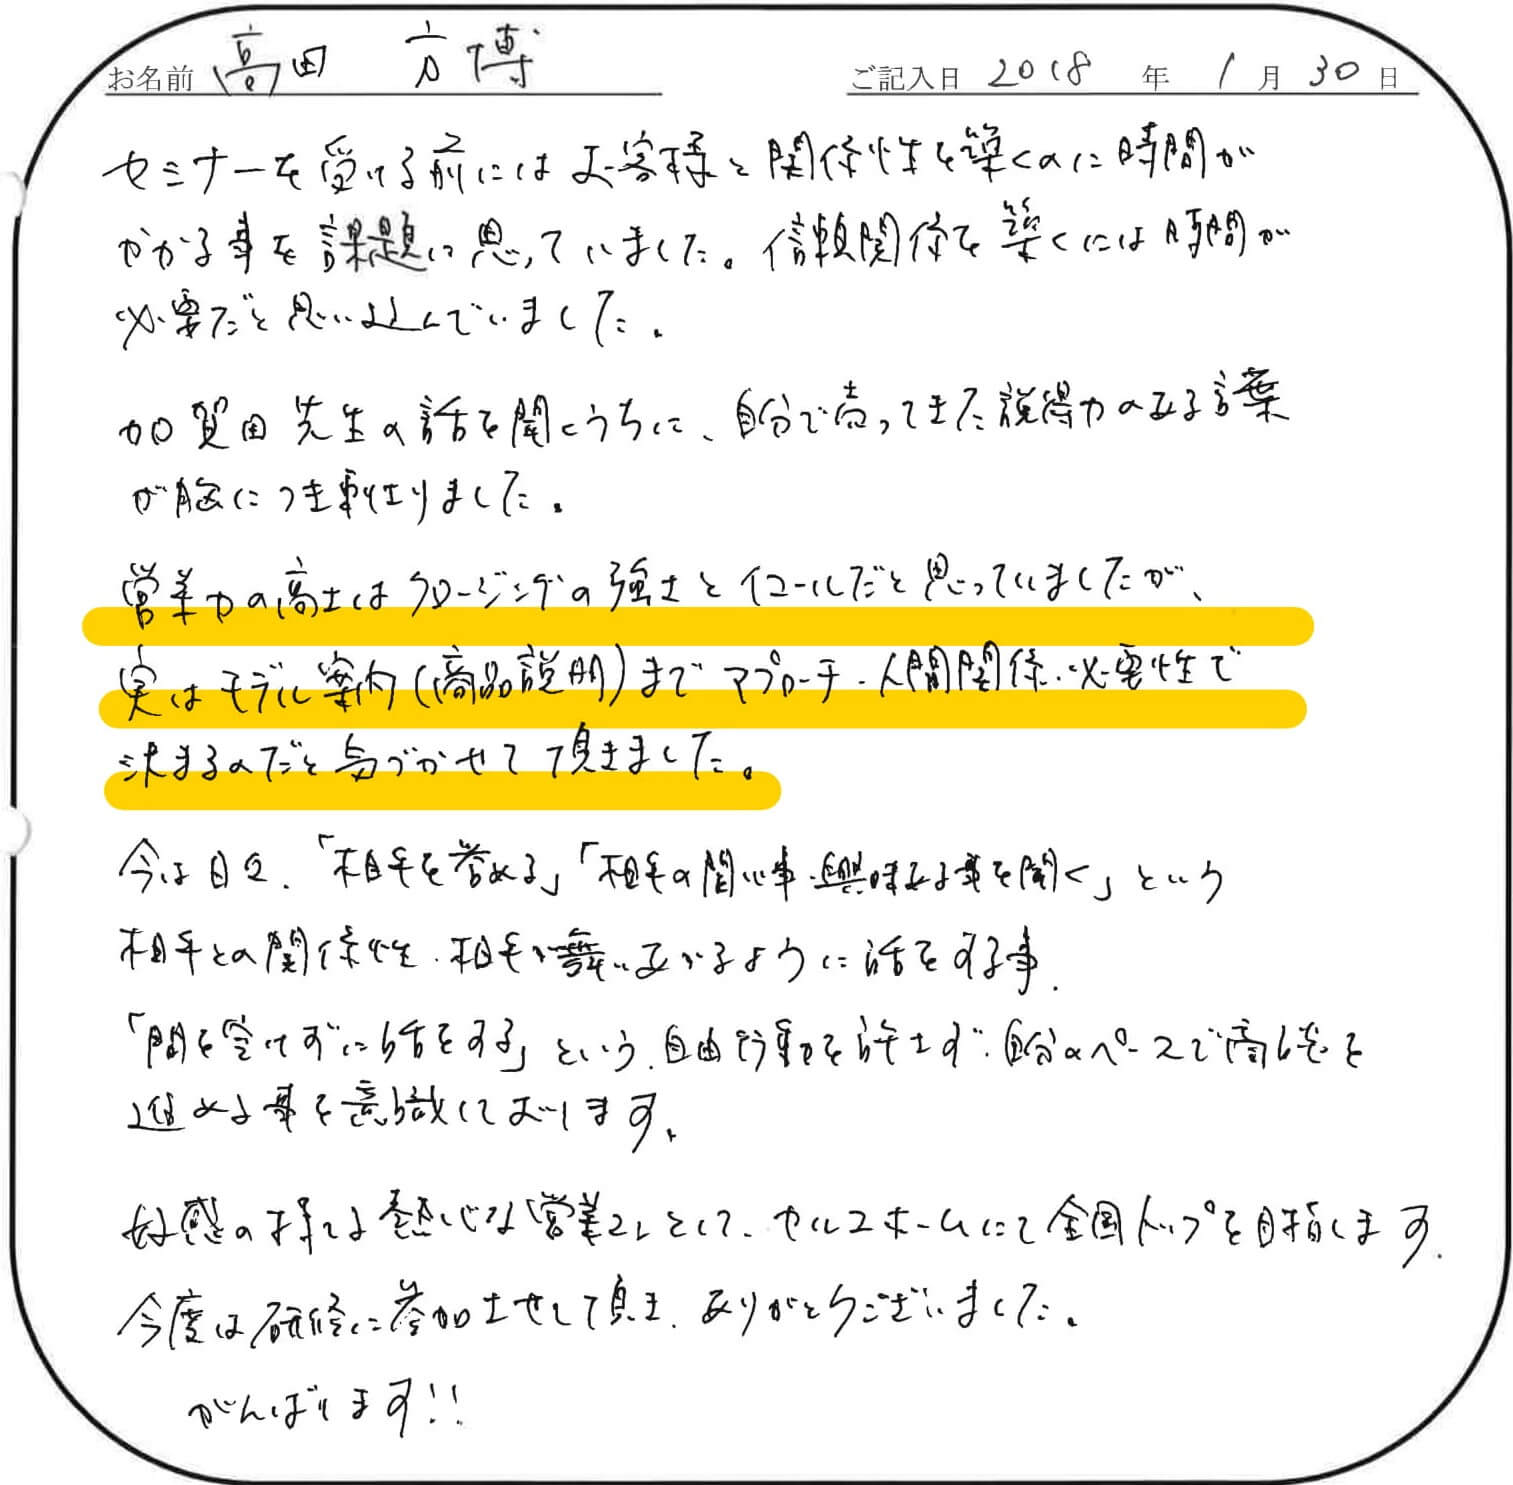 お名前 高田 方博 ご記入日 2018 年 1 月 30 日
セミナーを受ける前にはお客様と関係性を築くのに時間が
かかる事を課題に思っていました。信頼関係を築くには時間が
必要だと思い込んでいました。
加賀田先生の話を聞くうちに、自分で売ってきた説得力のある言葉
が胸につき刺さりました。
営業力の高さはクロージングの強さとイコールだと思っていましたが、
実はモデル案内(商品説明)までアプローチ・人間関係・必要性で
決まるのだと気づかせて頂きました。
今は日々、「相手を誉める」「相手の関心事・興味ある事を聞く」という
相手との関係性、相手が舞いあがるように話をする事、
「間を空けずに話をする」という、自由行動を許さず、自分のペースで商談を
進める事を意識しております。
の様な熱心な営業マンとして、セルコホームにて全国トップを目指します。
今度は研修に参加させて頂き、ありがとうございました。
がんばります!!